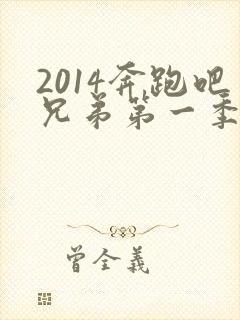 2014奔跑吧
兄弟第一季
曾全義